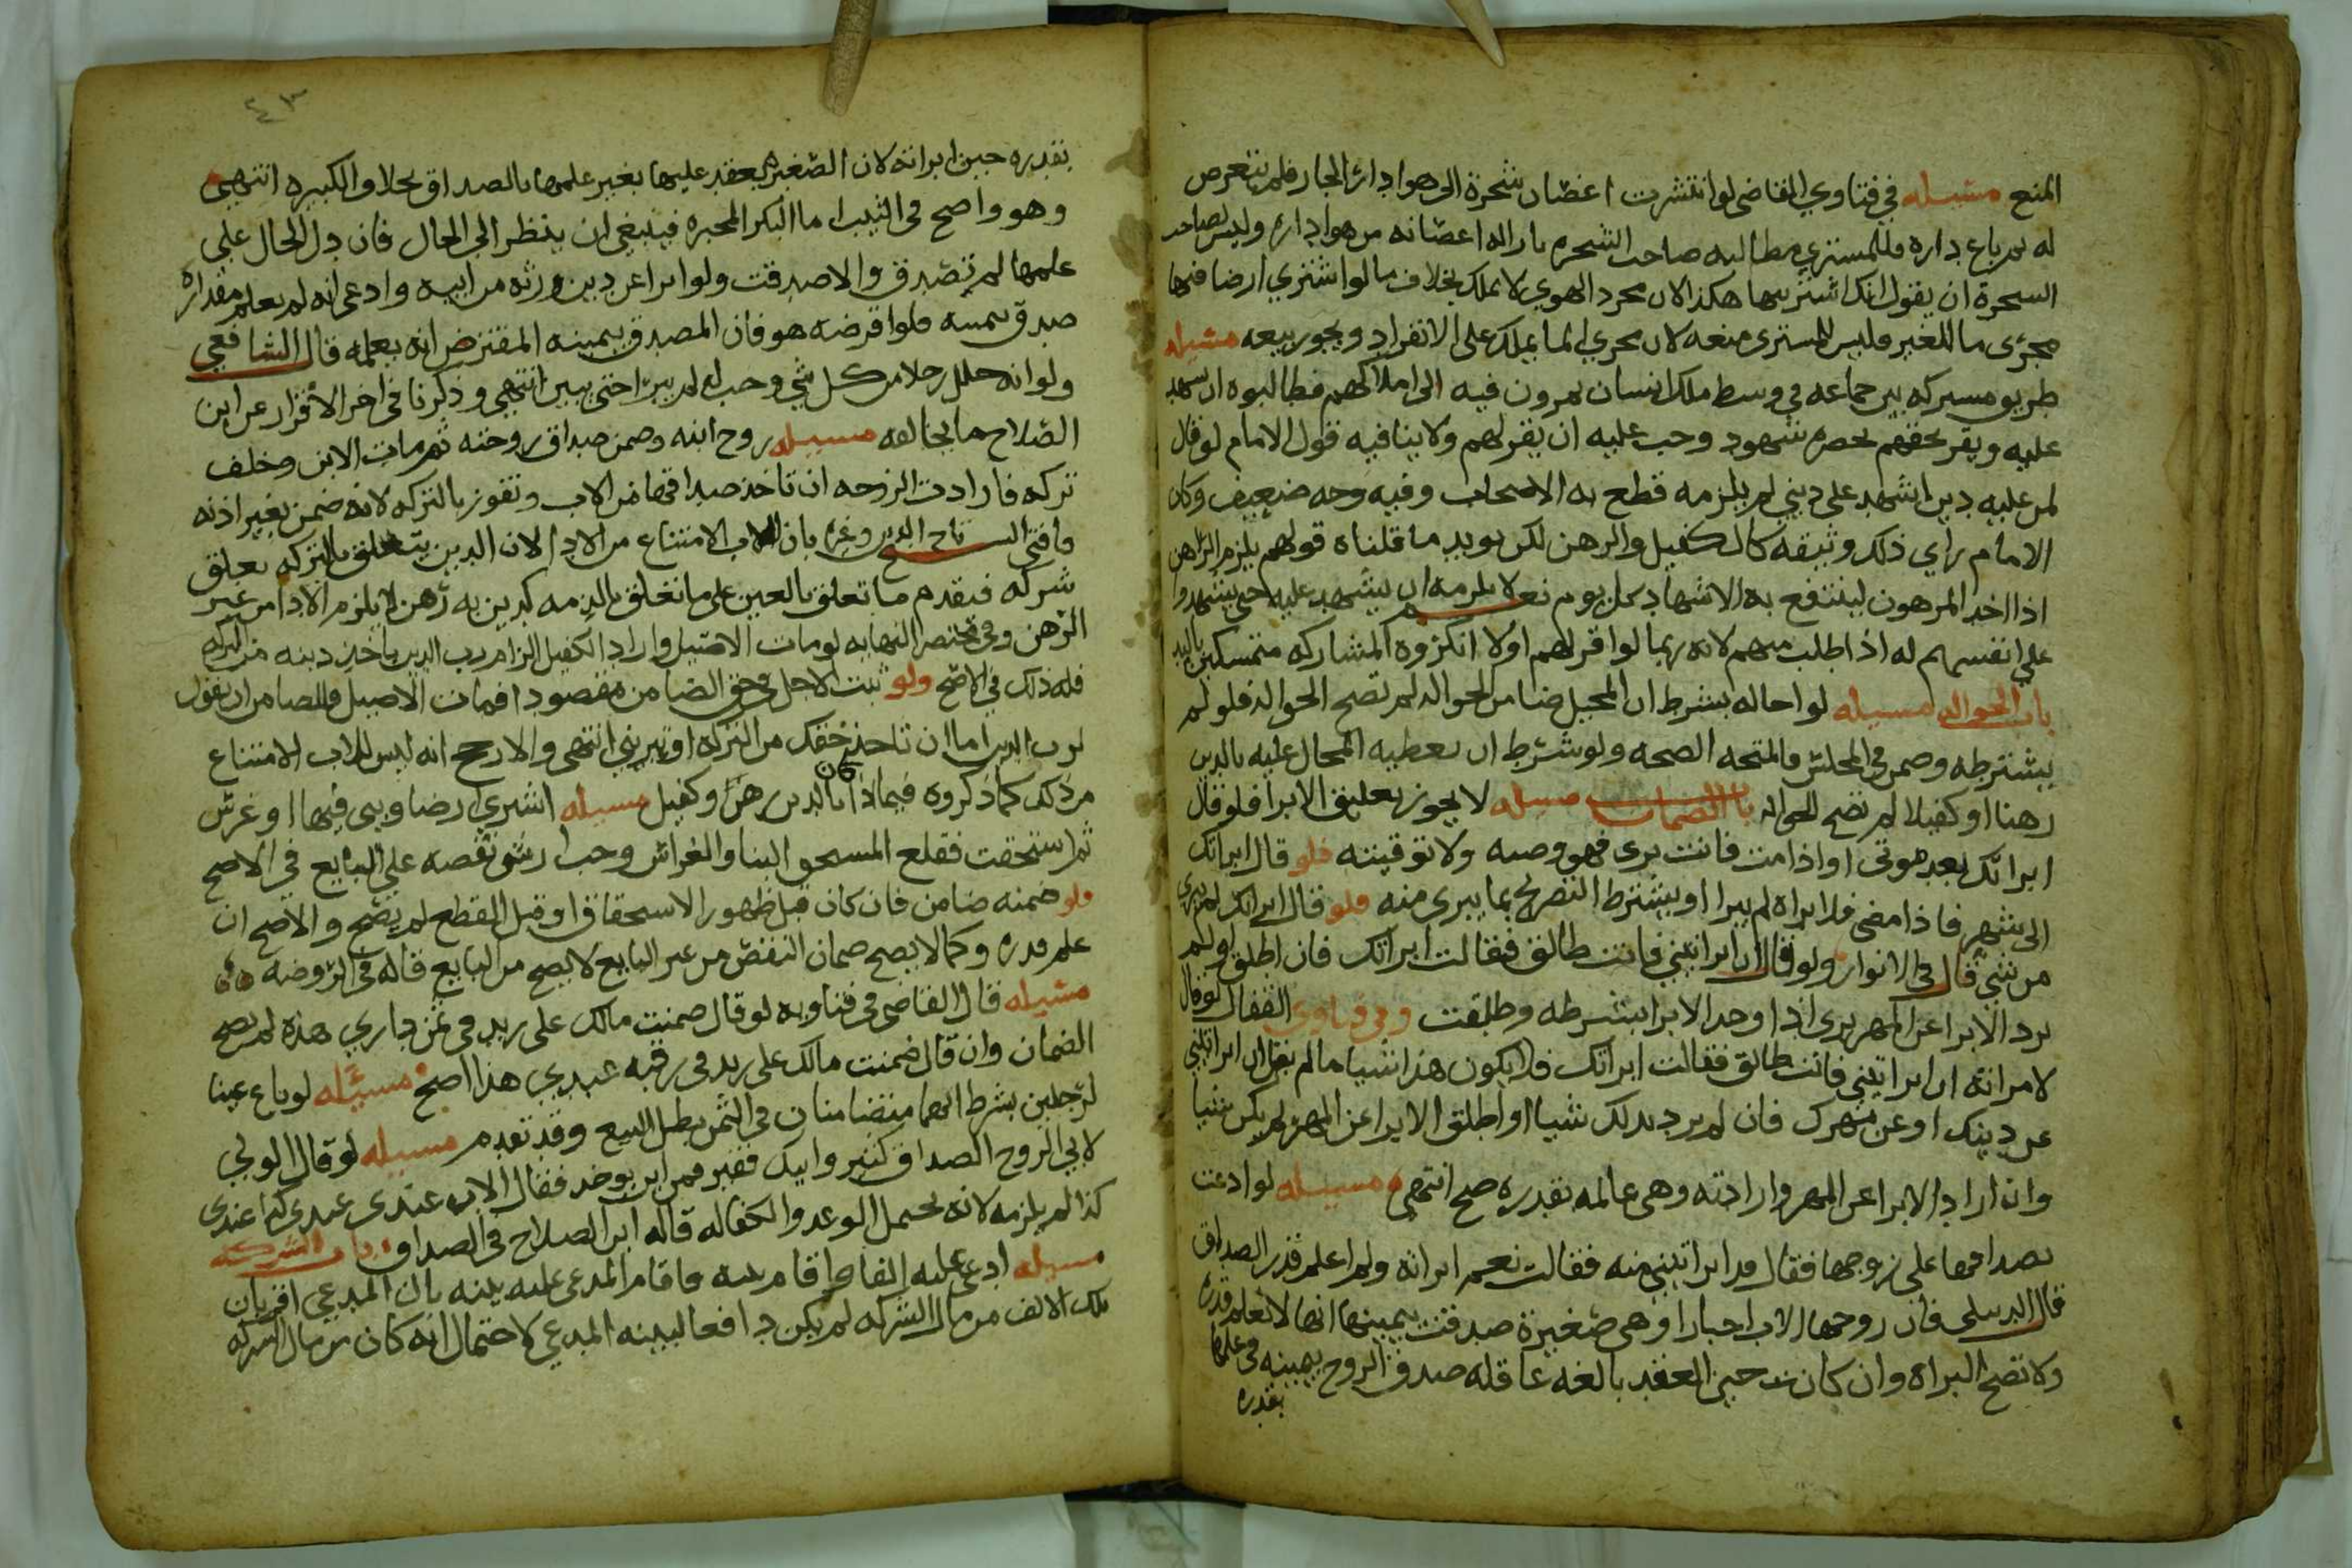 المنع مسيله في فتاوي القاضى لو انتشرت اغصان شجرة الى هوا دار الجار فلم يتعرض
له ثم باع داره فللمشتري مطالبه صاحب الشجره بازاله اغصانه من هوا داره وليس لصاحب
الشجرة ان يقول انك اشتريتها هكذا لان مجرد الهوي لا يملك بخلاف ما لو اشتري ارضا فيها
مجرى ما للغير فليس للمشترى منعه لان مجري الما يملك على الانفراد ويجوز بيعه مسيله
طريق مشتركه بين جماعه في وسط ملك انسان يمرون فيه الى املاكهم فطالبوه ان يشهد
عليه ويقر بحقهم بحضره شهود وجب عليه ان يقر لهم ولا ينافيه قول الامام لو قال
لمن عليه دين اشهد على ديني لم يلزمه قطع به الاصحاب وفيه وجه ضعيف وكان
الامام راي ذلك وثيقه كالكفيل والرهن لكن يويد ما قلناه قولهم يلزم الراهن
اذا اخذ المرهون لينتفع به الاشهاد كل يوم نعم لا يلزمه ان يشهد عليه حتى يشهدوا
على انفسهم له اذا طلب منهم لانه ربما لو اقر لهم اولا انكروه المشاركه متمسكين باليد
باب الحواله مسيله لو احاله بشرط ان المحيل ضامن الحواله لم تصح الحواله فلو لم
يشترطه وضمن في المجلس فالمتجه الصحه ولو شرط ان يعطيه المحال عليه بالدين
رهنا او كفيلا لم تصح الحواله باب الضمان مسيله لا يجوز تعليق الابرا فلو قال
ابراتك بعد موتى او اذا مت فانت برى فهو وصيه ولا توقيته فلو قال ابراتك
الى شهر فاذا مضى فلا براه لم يبرا او يشترط التصريح بما يبرى منه فلو قال ابراتك لم يبرى
من شي قال في الانوار ولو قال ان ابراتيني فانت طالق فقالت ابراتك فان اطلق او لم
يرد الابرا عن المهر برى اذا وجد الابرا بشرطه وطلقت وفي فتاوي القفال لو قال
لامراته ان ابراتيني فانت طالق فقالت ابراتك فلا يكون هذا شيا ما لم يقل ان ابراتيني
عن دينك او عن مهرك فان لم يرد بذلك شيا او اطلق الابرا عن المهر لم يكن شيا
وان اراد الابرا عن المهر وارادته وهي عالمه بقدره صح انتهى مسيله لو ادعت
بصداقها على زوجها فقال قد ابراتيني منه فقالت نعم ابراته ولم اعلم قدر الصداق
قال الدبيلى فان زوجها الاب اجبارا وهي صغيرة صدقت بيمينها انها لا تعلم قدره
ولا تصح البراه وان كانت حين العقد بالغه عاقله صدق الزوج بيمينه في علمها
بقدره
٤٣
بقدره حين ابراته لان الصغيره يعقد عليها بغير علمها بالصداق بخلاف الكبيره انتهى
وهو واضح في الثيب اما البكر المجبره فينبغي ان ينظر الى الحال فان دل الحال على
علمها لم تصدق والا صدقت ولو ابرا عن دين ورثه من ابيه وادعى انه لم يعلم مقداره
صدق بيمينه فلو اقرضه هو فان المصدق بيمينه المقترض انه يعلمه قال الشافعي
ولو انه حلل رجلا من كل شي وجب له لم يبرا حتى يبين انتهى وذكرنا في اخر الاقرار عن ابن
الصلاح ما يخالفه مسيله زوج ابنه وضمن صداق زوجته ثم مات الابن وخلف
تركه فارادت الزوجه ان تاخذ صداقها من الاب وتفوز بالتركه لانه ضمن بغير اذنه
فافتى الشيخ تاج الدين وغيره بان للاب الامتناع من الادا لان الدين يتعلق بالتركه تعلق
شركه فيقدم ما تعلق بالعين على ما تعلق بالذمه كدين به رهن لا يلزم الادا من غير
الرهن وفي مختصر النهايه لو مات الاصيل واراد الكفيل الزام رب الدين ياخذ دينه من التركه
فله ذلك في الاصح ولو ثبت الاجل في حق الضامن مقصودا فمات الاصيل فللضامن ان يقول
لرب الدين اما ان تاخذ حقك من التركه او تبريني انتهى والارجح انه ليس للاب الامتناع
من ذلك كما ذكروه فيما اذا كان بالدين رهن وكفيل مسيله اشترى ارضا وبنى فيها او غرس
ثم استحقت فقلع المستحق البنا والغراس وجب ارش نقصه على البايع في الاصح
فلو ضمنه ضامن فان كان قبل ظهور الاستحقاق او قبل القطع لم يصح والاصح ان
علم قدره وكما لا يصح ضمان النقض من غير البايع لا يصح من البايع قاله في الروضه
مسيله قال القاضى في فتاويه لو قال ضمنت مالك على زيد في ثمن داري هذه لم يصح
الضمان وان قال ضمنت مالك على زيد في رقبه عبدي هذا صح مسيله لو باع عينا
لرجلين بشرط انهما متضامنان في الثمن بطل البيع وقد تقدم مسيله لو قال الولي
لابي الزوج الصداق كثير وابنك فقير فمن اين يوخذ فقال الاب عندى عندى كذا عندى
كذا لم يلزمه لانه يحتمل الوعد والكفاله قاله ابن الصلاح في الصداق باب الشركه
مسيله ادعى عليه الفا واقام بينه فاقام المدعى عليه بينه بان المدعي اقر بان
تلك الالف من مال الشركه لم يكن دافعا لبينه المدعي لاحتمال انه كان من مال الشركه